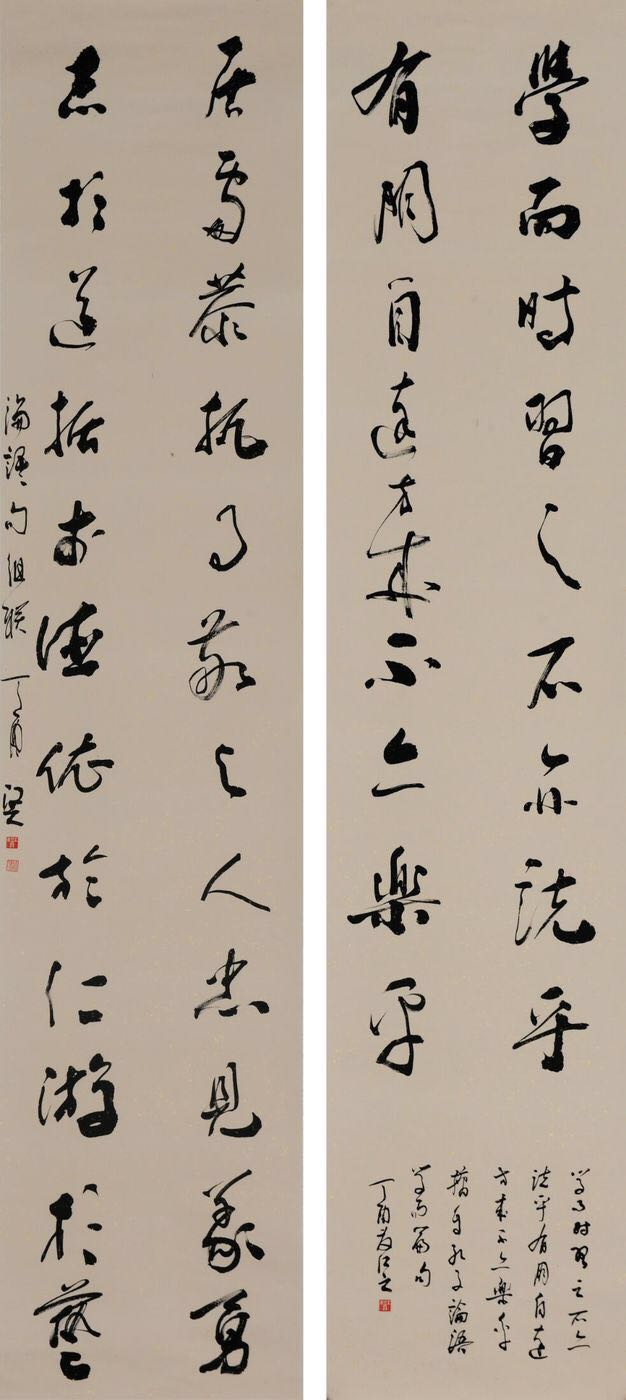 學而時習之不亦說乎
有朋自遠方來不亦樂乎
學而時習之不亦
說乎有朋自遠
方來不亦樂乎
摘自孔子論語
學而篇句
丁酉
居處恭執事敬與人忠見義勇
志於道據於德依於仁游於藝
論語句组联 丁酉